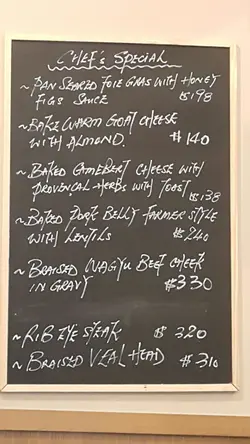 CHEF'S SPECIAL
~ PAN SEARED FOIE GRAS WITH HONEY
FIGS SAUCE $198
~ BAKE WARM GOAT CHEESE
WITH ALMOND. $140
~ BAKED CAMEBERT CHEESE WITH
PROVENCAL HERBS WITH TOAST $138
~ BAKED PORK BELLY FARMER STYLE
WITH LENTILS $240
~ BRAISED WAGYU BEEF CHEEK
IN GRAVY $330
~ RIB EYE STEAK $320
~ BRAISED VEAL HEAD $310